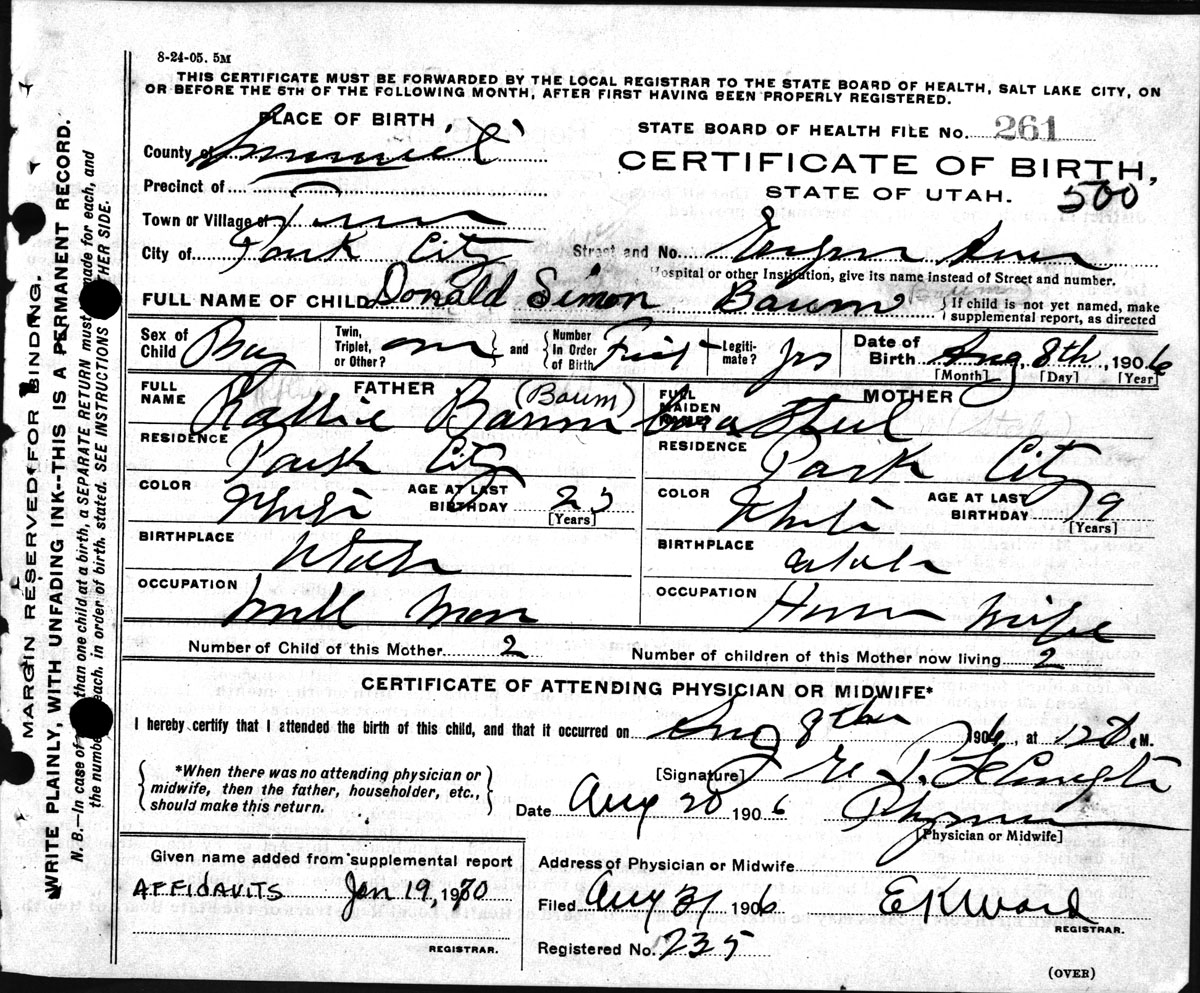 8-24-05. 5M
THIS CERTIFICATE MUST BE FORWARDED BY THE LOCAL REGISTRAR TO THE STATE BOARD OF HEALTH, SALT LAKE CITY, ON
OR BEFORE THE 5TH OF THE FOLLOWING MONTH, AFTER FIRST HAVING BEEN PROPERLY REGISTERED.
PLACE OF BIRTH
STATE BOARD OF HEALTH FILE No. 261
County of Summit
CERTIFICATE OF BIRTH,
Precinct of
STATE OF UTAH. 500
Town or Village of
City of Park City Street and No.
Hospital or other Institution, give its name instead of Street and number.
FULL NAME OF CHILD Donald Simon Baum { If child is not yet named, make
supplemental report, as directed
Sex of Child Boy Twin, Triplet, or Other? one and Number In Order of Birth First Legiti-mate? yes Date of Birth Aug. 8th, 1906
[Month] [Day] [Year]
FATHER
MOTHER
FULL NAME Baum (Baum)
FULL MAIDEN NAME (Stahl)
RESIDENCE Park City
RESIDENCE Park City
COLOR White AGE AT LAST BIRTHDAY 23 [Years]
COLOR White AGE AT LAST BIRTHDAY 19 [Years]
BIRTHPLACE Utah
BIRTHPLACE Utah
OCCUPATION Mill Man
OCCUPATION House Wife
Number of Child of this Mother 2 Number of children of this Mother now living 2
CERTIFICATE OF ATTENDING PHYSICIAN OR MIDWIFE*
I hereby certify that I attended the birth of this child, and that it occurred on Aug 8th 1906, at 12 M.
{ *When there was no attending physician or
midwife, then the father, householder, etc.,
should make this return. }
[Signature]
Date Aug 20 1906 Physician
[Physician or Midwife]
Given name added from supplemental report
AFFIDAVITS Jan 19, 1970
REGISTRAR.
Address of Physician or Midwife
Filed Aug 31 1906 E K Ward
REGISTRAR.
Registered No. 235
(OVER)
MARGIN RESERVED FOR BINDING.
WRITE PLAINLY, WITH UNFADING INK--THIS IS A PERMANENT RECORD.
N. B.—In case of than one child at a birth, a SEPARATE RETURN must made for each, and
the number each, in order of birth, stated. SEE INSTRUCTIONS OTHER SIDE.